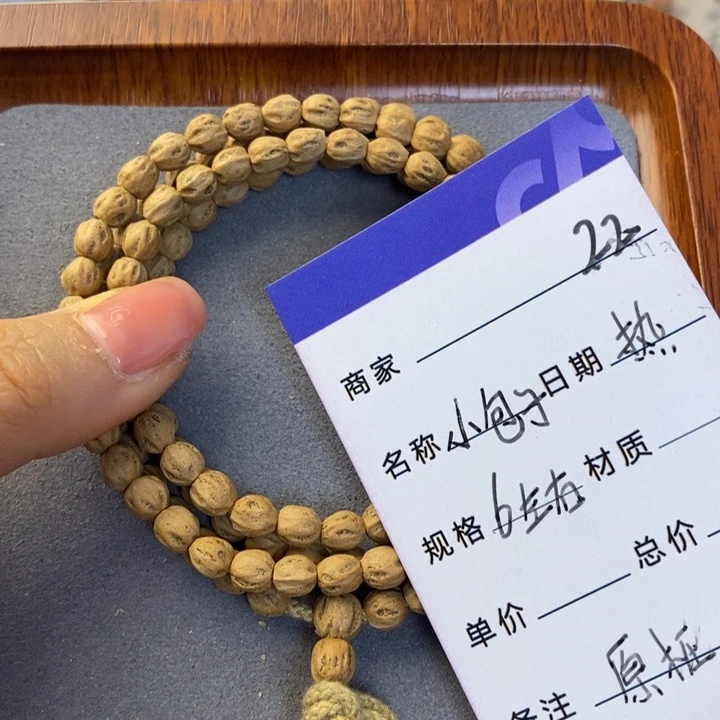 22
商家
名称 小包子 日期 热
规格 6左右 材质
单价 总价
备注 原框